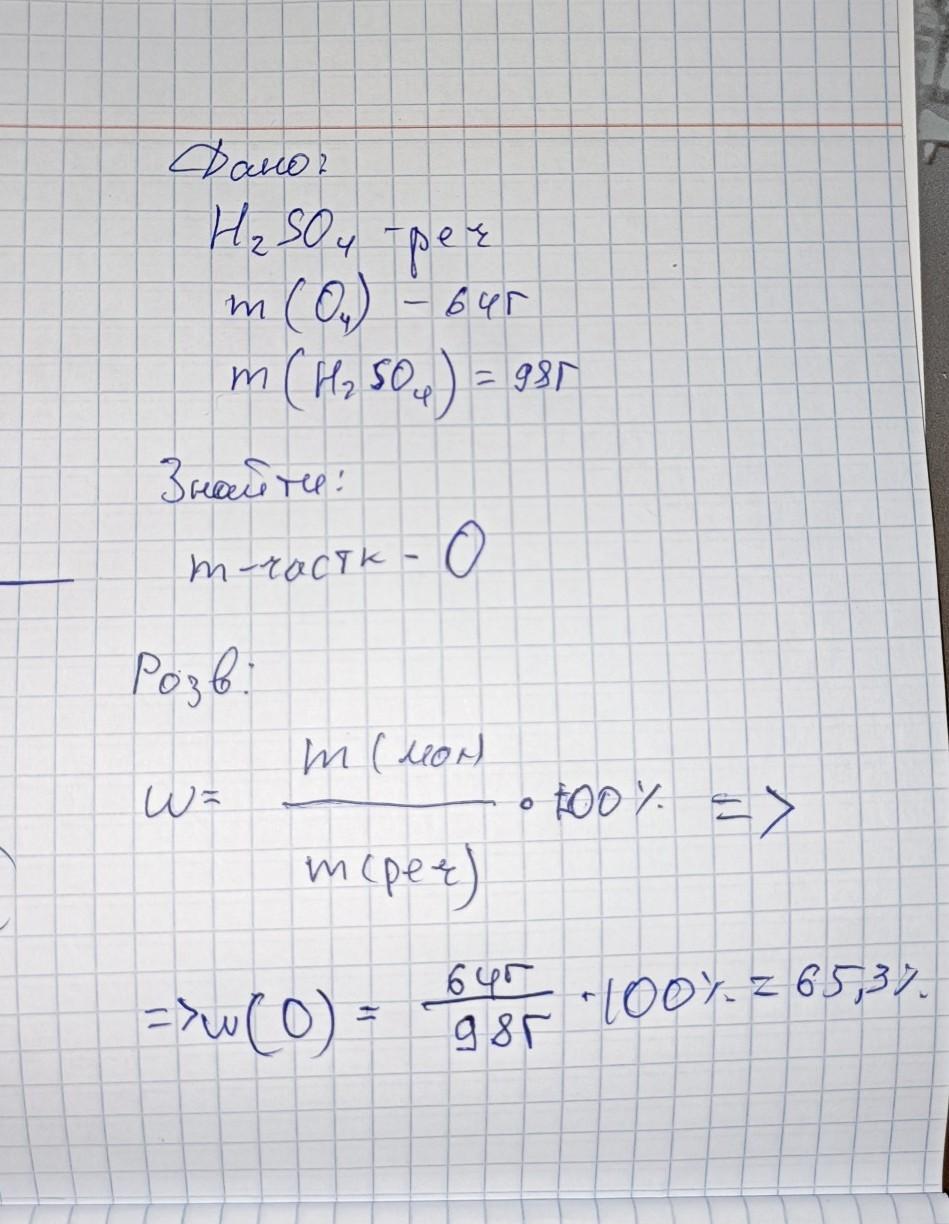 Дано:
H₂SO₄ - реч
m (O₄) - 64г
m (H₂SO₄) = 98г
Знайти:
m - частк - O
Розв:
m (мол)
w = ――― · 100% =>
m (реч)
=> w(O) = 64г / 98г · 100% = 65,3%.